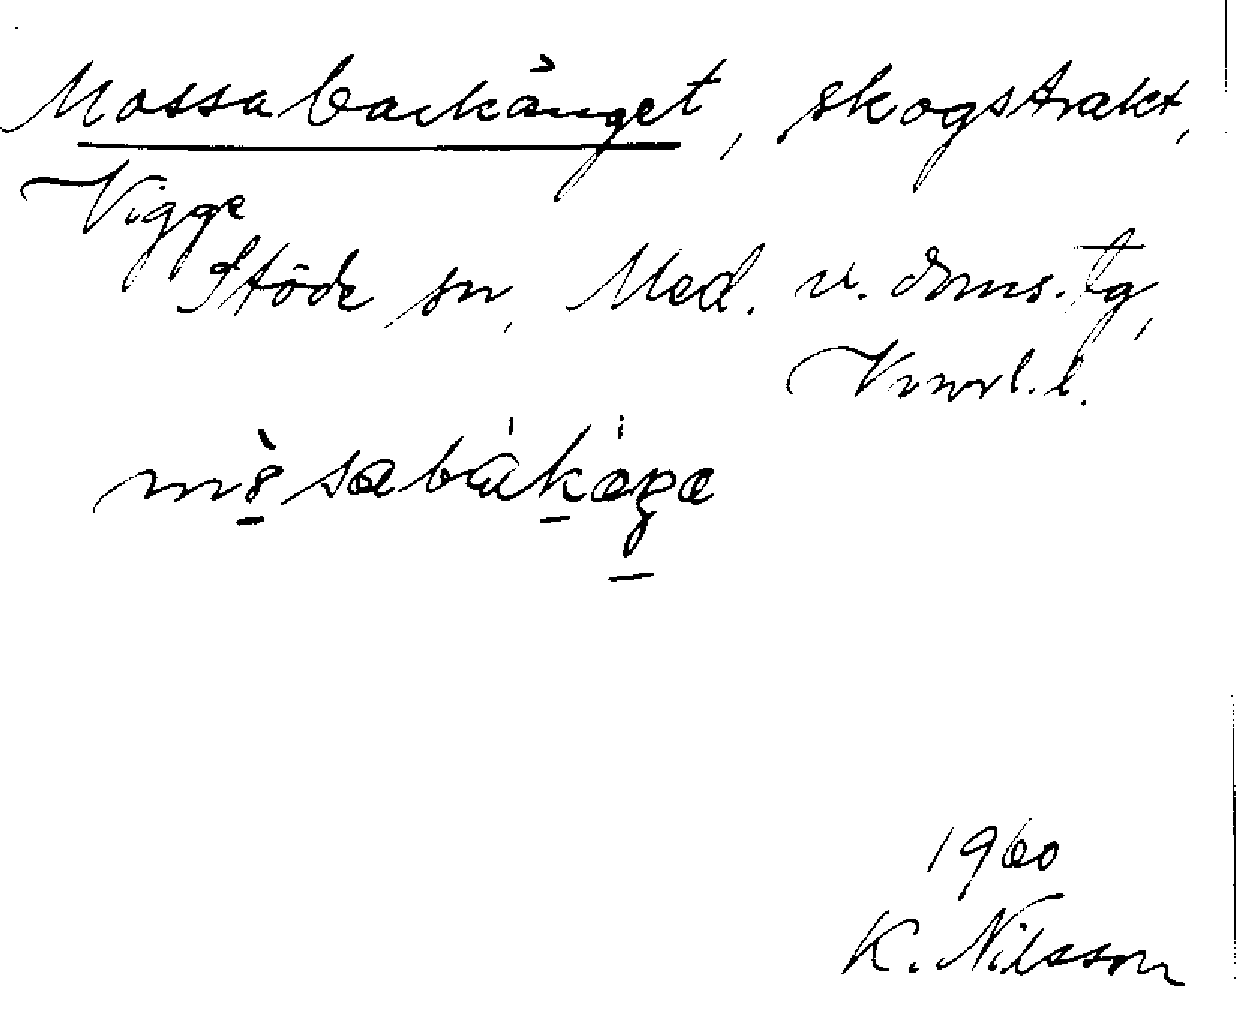 Mossabackänget, skogstrakt,
Vigge
Stöde sn, Med. v. doms. tg,
Vnorl. l.
1960
K. Nilsson